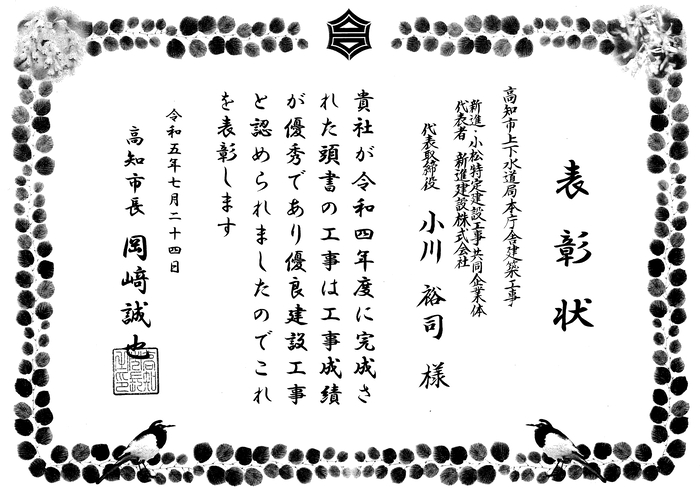 表彰状
高知市上下水道局本庁舎建築工事
新進・小松特定建設工事共同企業体
代表者 新進建設株式会社
代表取締役 小川 裕司 様
貴社が令和四年度に完成さ
れた頭書の工事は工事成績
が優秀であり優良建設工事
と認められましたのでこれ
を表彰します
令和五年七月二十四日
高知市長 岡﨑誠也